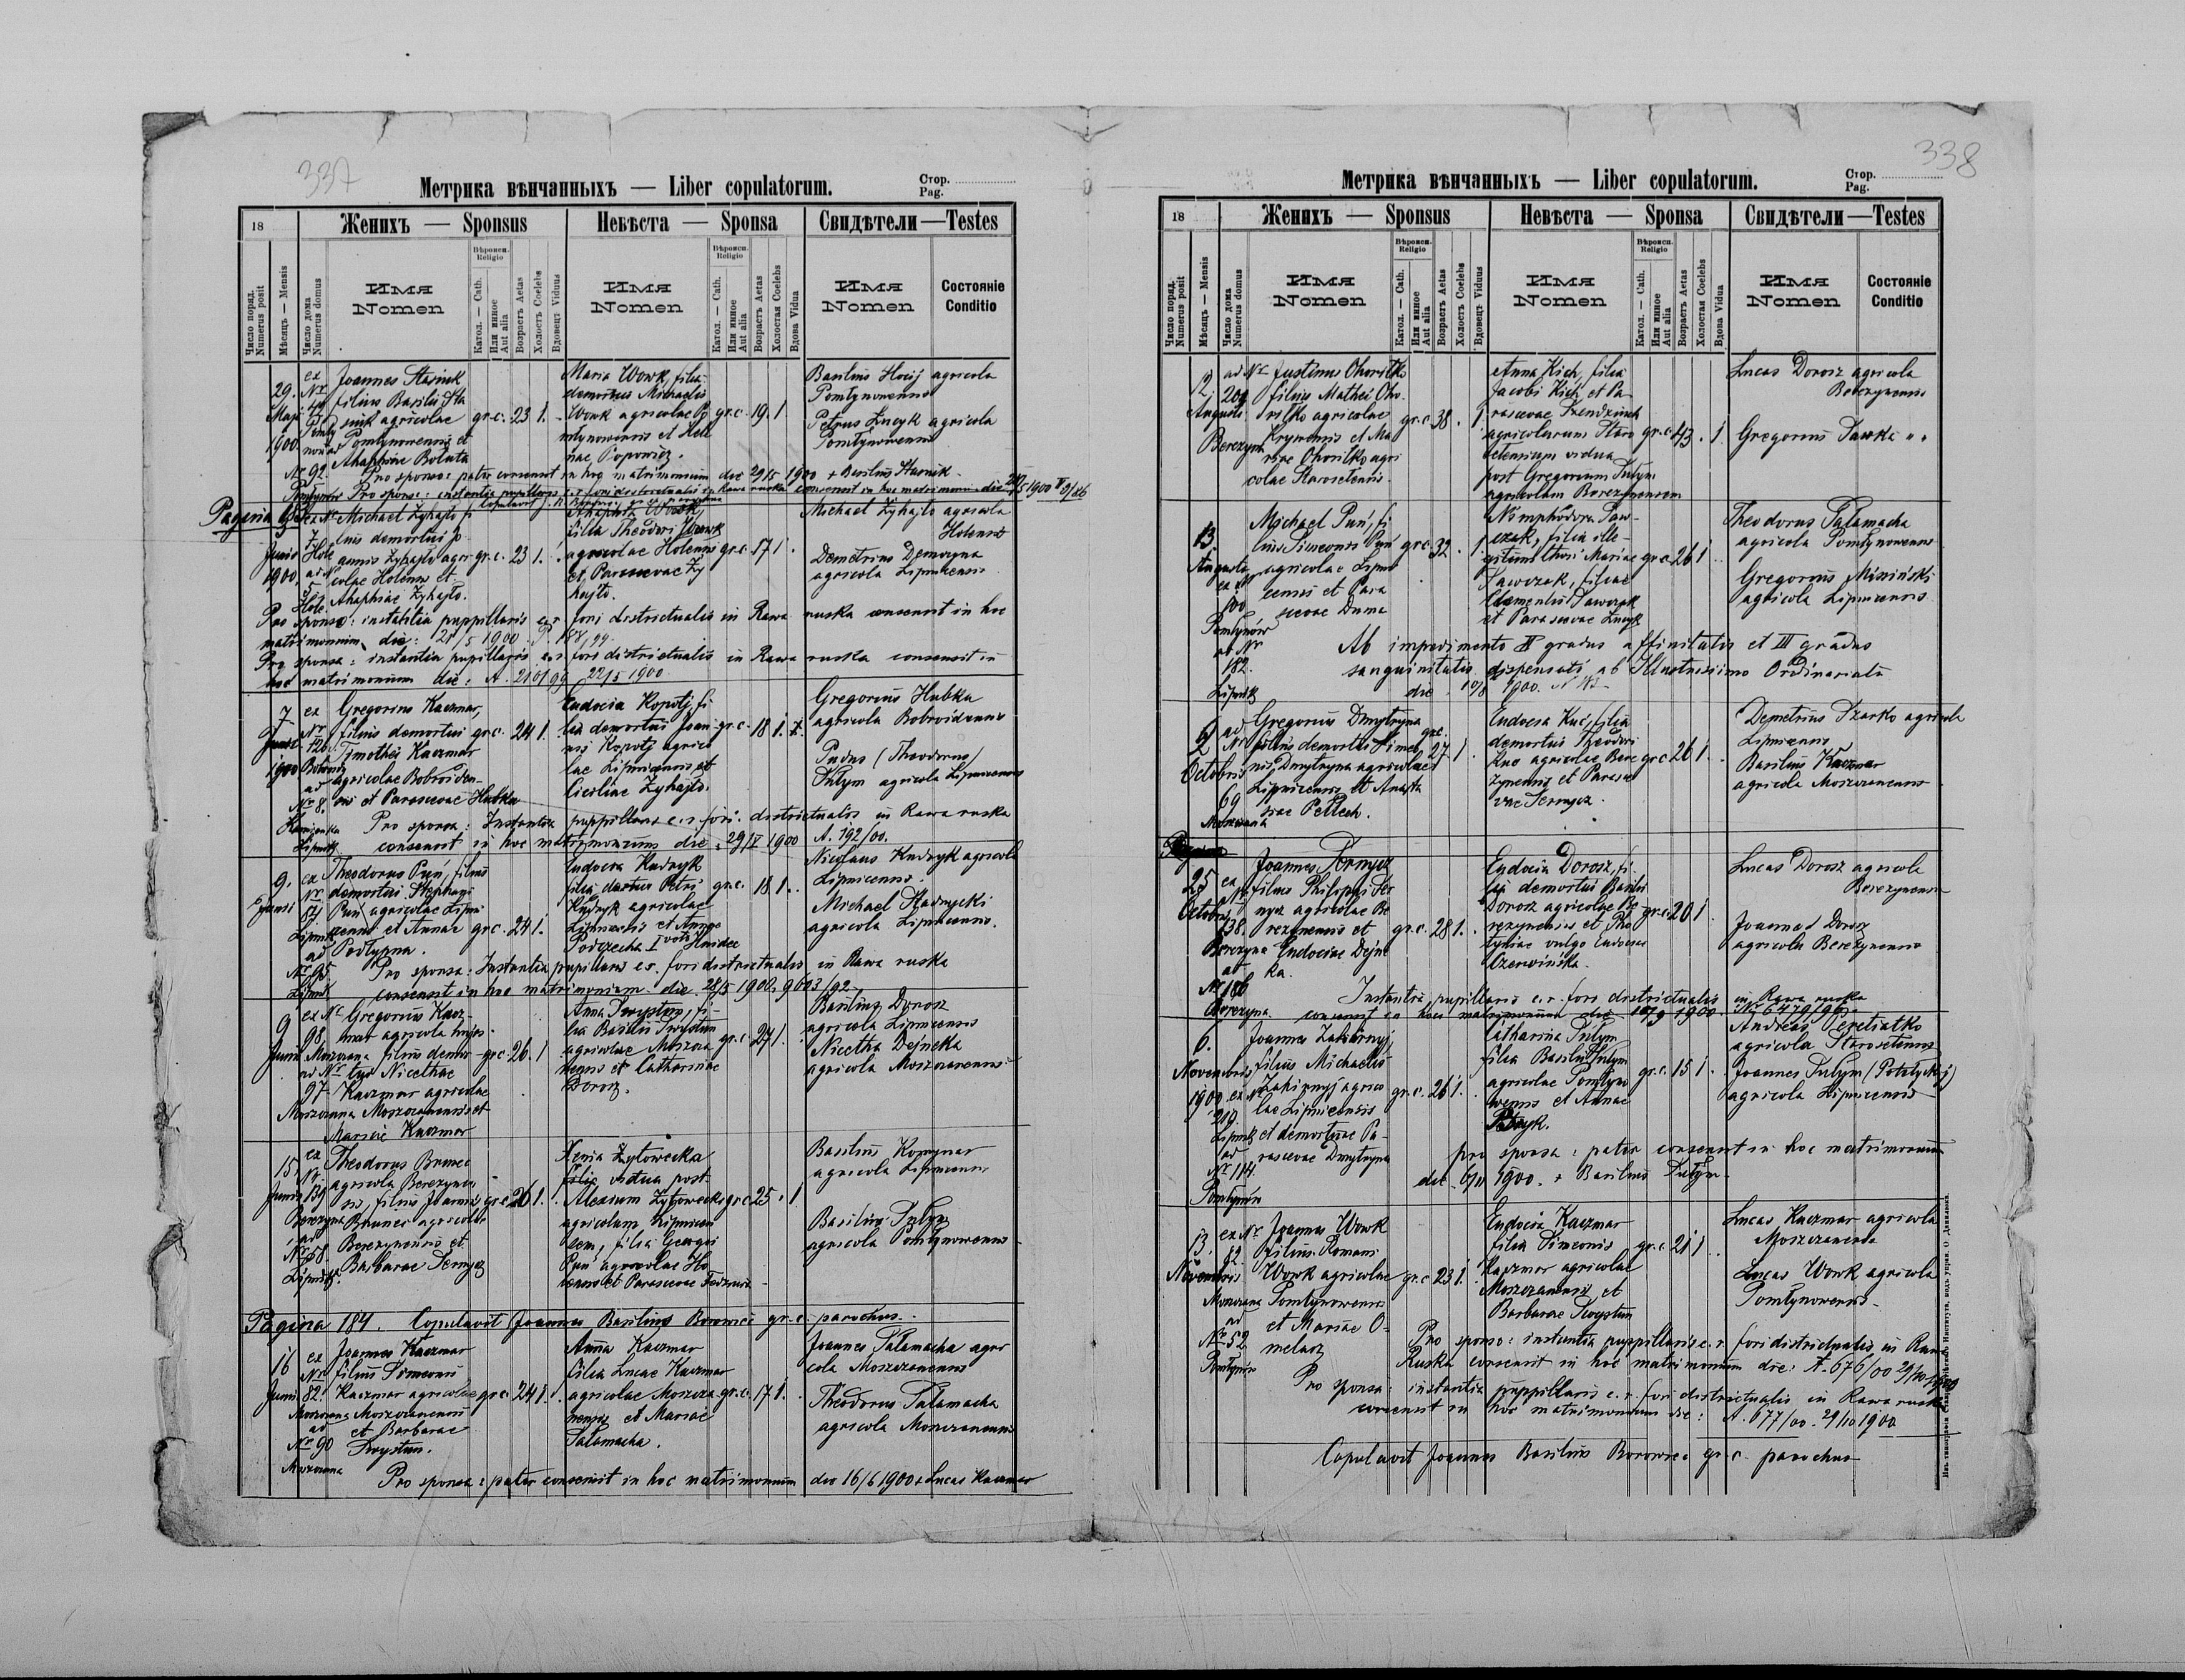 337
Метрика вѣнчанныхъ — Liber copulatorum.
Стор.
Pag.
18
Женихъ — Sponsus
Невѣста — Sponsa
Свидѣтели — Testes
Число поряд. Numerus posit
Мѣсяцъ — Mensis
Число дома Numerus domus
Имя Nomen
Вѣроисп. Religio
Катол. — Cath.
Или инное Aut alia
Возрастъ Aetas
Холостъ Coelebs
Вдовецъ Viduus
Имя Nomen
Вѣроисп. Religio
Катол. — Cath.
Или инное Aut alia
Возрастъ Aetas
Холостая Coelebs
Вдова Vidua
Имя Nomen
Состояніе Conditio
29. Maji 1900
ex Nr
Joannes Stasiuk
filius Basilii Sta
siuk agricolae
Pomłynowensis et
Ahaphiae Boluta
gr.c. 23 1.
Maria Wowk, filia
demortuus Michaelis
Wowk agricolae Po
młynowensis et Hele
nae Popowicz.
gr.c. 19. 1
Basilius Hocij agricola
Pomłynowensis
Petrus Łucyk agricola
Pomłynowensis
Nr 92.
Pro sponso: pater consensit in hoc matrimonium die 29/5 1900 + Basilius Stasiuk
Pro sponsa: instantia pupillaris e.r. fori districtualis in Rawa ruska consensit in hoc matrimonium die
Pagina 183
ex Nr Michael Zyhajło fi
lius demortui Jo
annis Zyhajło agri
colae Holensis et
Ahaphiae Zyhajło.
Junii 1900
Hole
gr.c. 23 1.
Ahaphia Wowk,
filia Theodori Wowk
agricolae Holensis
et Parascevae Zy
hajło.
gr.c. 17 1.
Michael Zyhajło agricola
Holensis
Demetrius Demczyna
agricola Lipnicensis
Pro sponso: instantia puppillaris e.r. fori districtualis in Rawa ruska consensit in hoc
matrimonium die: 21/5 1900
Pro sponsa: instantia pupillaris e.r. fori districtualis in Rawa ruska consensit in
hoc matrimonium die: A. 210/99 22/5 1900.
7 Junii 1900
ex Nr 126
Gregorius Kaczmar,
filius demortui
Timothei Kaczmar
agricolae Bobroiden
sis et Parascevae Hubka
gr.c. 24 1.
Eudocia Kopotj, fi
lia demortui Joan
nis Kopotj agrico
lae Lipnicensis et
Ciciliae Zyhajło.
gr.c. 18 1.
Gregorius Hubka
agricola Bobroidensis
(Theodorus)
Dułym agricola Lipnicensis
ad Nr 8.
Kamionka
Lipnik
Pro sponsa: Instantia puppillaris e.r. fori districtualis in Rawa ruska
consensit in hoc matrimonium die: 29/V 1900 A. 192/00.
9. Junii
ex Nr 84
Lipnik
Theodorus Puń, filius
demortui Stephani
Puń agricolae Lipni
censis et Annae
Podłypna.
gr.c. 24 1.
Eudocia Kudryk
filia demortui Petri
Kudryk agricolae
Lipnicensis et Annae
gr.c. 18 1.
Nicolaus Kudryk agricola
Lipnicensis.
Michael Kudrycki
agricola Lipnicensis.
ad Nr 95
Lipnik
Pro sponsa: Instantia pupillaris e.r. fori districtualis in Rawa ruska
consensit in hoc matrimonium die 28/5 1900. 9603/92
9 Junii
ex Nr 98.
Moszczana
ad Nr 97
Moszczana
Gregorius Kacz-
mar agricola
filius demor
tui Nicethae
Kaczmar agricolae
Moszczanensis et
Mariae Kaczmar
gr.c. 26. 1
Anna Swystun, fi-
lia Basilii Swystun
agricolae Moszcza
nensis et Catharinae
Dorosz.
gr.c. 27 1.
Basilius Dorosz
agricola Lipnicensis
Nicetha Dejneka
agricola Moszczanensis
15. Junii
ex Nr 139
Berezyna
ad Nr 58
Lipnik.
Theodorus Brunec
agricola Berezynen
sis, filius Joannis
Brunec agricolae
Berezynensis et
Barbarae Sernycz
gr.c. 26 1.
Xenia Zytowecka
filia vidua post
Alexium Zytowecki
agricolam Lipnicen
sem, filia Georgii
Puń agricolae Ho
lensis et Parascevae
gr.c. 25 . 1
Basilius Komynar
agricola Lipnicensis
Basilius Dułyn
agricola Pomłynowensis
Pagina 184. Copulavit Joannes Basilius Borowiec gr. c. parochus.
16 Junii
ex Nr 82.
Moszczana
ad Nr 90
Moszczana
Joannes Kaczmar
filius Simeonis
Kaczmar agricolae
Moszczanensis
et Barbarae
Swystun.
gr.c. 24 1.
Anna Kaczmar
filia Lucae Kaczmar
agricolae Moszcza
nensis et Mariae
Salamacha.
gr.c. 17 1.
Joannes Salamacha agri
cola Moszczanensis
Theodorus Salamacha
agricola Moszczanensis
Pro sponsa: pater consensit in hoc matrimonium die 16/6 1900 + Lucas Kaczmar
338
Метрика вѣнчанныхъ — Liber copulatorum.
Стор.
Pag.
18
Женихъ — Sponsus
Невѣста — Sponsa
Свидѣтели — Testes
Число поряд. Numerus posit
Мѣсяцъ — Mensis
Число дома Numerus domus
Имя Nomen
Вѣроисп. Religio
Катол. — Cath.
Или инное Aut alia
Возрастъ Aetas
Холостъ Coelebs
Вдовецъ Viduus
Имя Nomen
Вѣроисп. Religio
Катол. — Cath.
Или инное Aut alia
Возрастъ Aetas
Холостая Coelebs
Вдова Vidua
Имя Nomen
Состояніе Conditio
12. Augusti
ad Nr 209
Berezyna
Justinus Ohoritko
filius Mathei Oho
ritko agricolae
et Ma
riae Ohoritko agri
colae Staroselensis
gr.c. 38 . 1
Anna Kich, filia
Jacobi Kich et Pa
rascevae
agricolarum Staro
selensium vidua
post Gregorium Dułym
agricolam Berezynensem
gr.c. 43 . 1
Lucas Dorosz agricola
Berezynensis
Gregorius Sawka " "
13. Augusti
Pomłynów
ad Nr 182.
Lipnik
Michael Puń, fi
lius Simeonis Puń
agricolae Lipni
censis et Para
scevae Duma
gr.c. 32 . 1
Nimphodora Saw-
czak, filia ille-
gitimi thori Mariae
Sawczak, filiae
Clementis Sawczak
et Parascevae Łucyk
gr.c. 26 1
Theodorus Salamacha
agricola Pomłynowensis
Gregorius Misiński
agricola Lipnicensis
Ab impedimento II gradus affinitatis et III gradus
sanguinitatis dispensati ab Illustrissimo Ordinariatu
die 10/8 1900.
9 Octobris
ad Nr
69
Gregorius Dmytryna
filius demortui Simeo
nis Dmytryna agricolae
Lipnicensis et Anasta
siae Pellech.
gr.c. 27 1.
Eudocia Kuc, filia
demortui Theodori
Kuc agricolae Bere
zynensis et Parasce
vae Sernycz.
gr.c. 26 1
Demetrius Dzarko agricola
Lipnicensis
Basilius Kaczmar
agricola Moszczanensis
25 Octobris
ex Nr 138.
Berezyna
ad Nr 186
Berezyna
Joannes Sernycz
filius Philippi Ser
nycz agricolae Be
rezynensis et
Eudociae Dejne
ka.
gr.c. 28 1.
Eudocia Dorosz, fi-
lia demortui Basilii
Dorosz agricolae Be
rezynensis et
vulgo Eudociae
Czerwińska.
gr.c. 20 1
Lucas Dorosz agricola
Berezynensis
Joannes Dorosz
agricola Berezynensis
Instantia pupillaris e.r. fori districtualis in Rawa ruska
consensit in hoc matrimonium die 10/9 1900 Nr 6479/96.
6. Novembris 1900
ex Nr 217
Lipnik
ad Nr 114.
Pomłynów
Joannes Zakirnyj
filius Michaelis
Zakirnyj agrico
lae Lipnicensis
et demortuae Pa-
rascevae Dmytryna
gr.c. 26 1.
Catharina Dułym
filia Basilii Dułym
agricolae Pomłyno
wensis et Annae
gr.c. 15 1.
Andreas Peretiatko
agricola Staroselensis
Joannes Dułym (Potatyckyj)
agricola Lipnicensis
pro sponsa: pater consensit in hoc matrimonium
die 6/11 1900. + Basilius Dułym
13. Novembris
ex Nr 82.
Moszczana
ad Nr 52
Pomłynów
Joannes Wowk
filius Romani
Wowk agricolae
Pomłynowensis
et Mariae O-
melacz
gr.c. 23 1.
Eudocia Kaczmar
filia Simeonis
Kaczmar agricolae
Moszczanensis et
Barbarae Swystun
gr.c. 21 1
Lucas Kaczmar agricola
Moszczanensis
Lucas Wowk agricola
Pomłynowensis
Pro sponso: instantia puppillaris e.r. fori districtualis in Rawa
Ruska consensit in hoc matrimonium die: A. 676/00 29/10 1900
Pro sponsa: instantia puppillaris e.r. fori districtualis in Rawa ruska
consensit in hoc matrimonium die: A. 677/00. 29/10 1900
Copulavit Joannes Basilius Borowiec gr. c. parochus